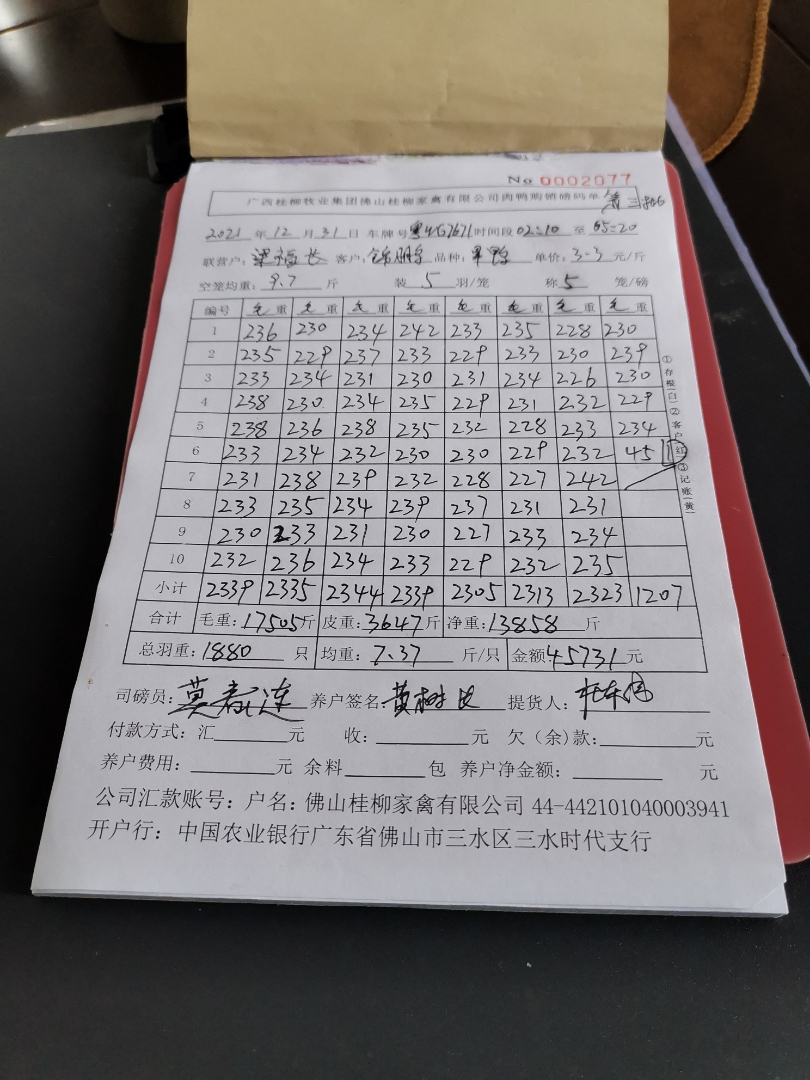 No 0002077
广西桂柳牧业集团佛山桂柳家禽有限公司肉鸭购销磅码单
2021 年 12 月 31 日 车牌号 时间段 02:10 至 05:20
联营户: 客户: 品种: 单价: 3.3 元/斤
空笼均重: 9.7 斤 装 5 羽/笼 称 5 笼/磅
编号 毛重 毛重 毛重 毛重 毛重 毛重 毛重 毛重
1 236 230 234 242 233 235 228 230
2 235 229 237 233 229 233 230 239
3 233 234 231 230 231 234 226 230
4 238 230 234 235 229 231 232 229
5 238 236 238 235 232 228 233 234
6 233 234 232 230 230 229 232 45 1
7 231 238 239 232 228 227 242
8 233 235 234 239 237 231 231
9 230 233 231 230 227 233 234
10 232 236 234 233 229 232 235
小计 2339 2335 2344 2339 2305 2313 2323 1207
合计 毛重: 17505 斤 皮重: 3647 斤 净重: 13858 斤
总羽重: 1880 只 均重: 7.37 斤/只 金额 45731 元
①存根(白)②客户(红)③记账(黄)
司磅员: 养户签名: 提货人:
付款方式: 汇 元 收: 元 欠(余)款: 元
养户费用: 元 余料 包 养户净金额: 元
公司汇款账号: 户名: 佛山桂柳家禽有限公司 44-442101040003941
开户行: 中国农业银行广东省佛山市三水区三水时代支行